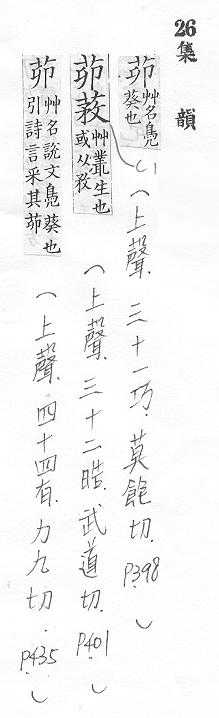 26集韻
茆艸名鳧葵也(上聲.三十一巧.莫飽切.P.398.)
茆茭艸叢生也或从孜(上聲.三十二晧.武道切.P.401.)
茆艸名說文鳧葵也引詩言采其茆(上聲.四十四有.力九切.P.435.)